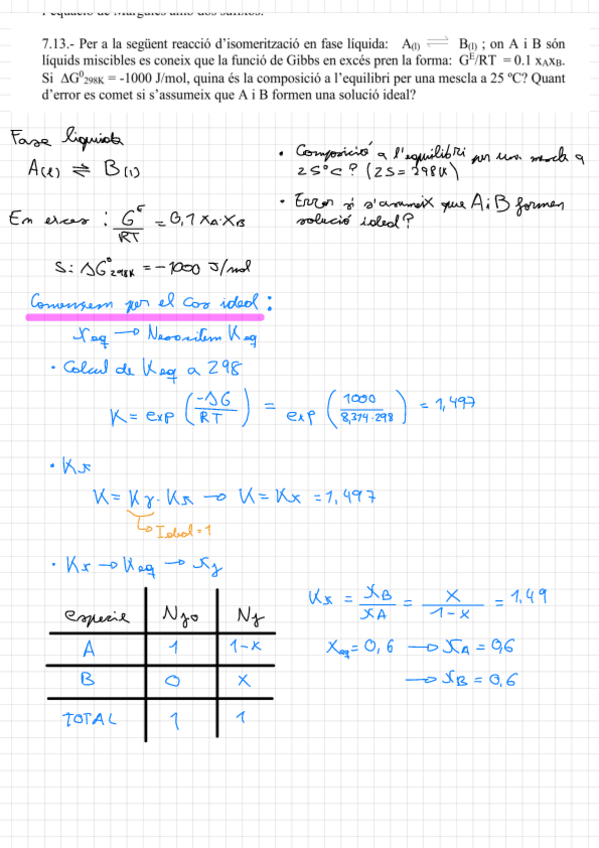 7.13.- Per a la següent reacció d'isomerització en fase líquida: A(l) ⇌ B(l) ; on A i B són
líquids miscibles es coneix que la funció de Gibbs en excés pren la forma: G^E/RT = 0.1 x_A x_B.
Si ΔG⁰_298K = -1000 J/mol, quina és la composició a l'equilibri per una mescla a 25 ºC? Quant
d'error es comet si s'assumeix que A i B formen una solució ideal?
Fase liquida
A(l) ⇌ B(l)
En exces : G^E/RT = 0,1 x_A·x_B
Si ΔG°_298K = -1000 J/mol
• Composició a l'equilibri per un mescla a
25°C? (25 = 298K)
• Error si s'assumeix que A i B formen
solució ideal?
Comensem per el cas ideal :
x_eq → Necesitem K_eq
• Calcul de K_eq a 298
K = exp (-ΔG/RT) = exp (1000/8,314·298) = 1,497
• Kx
K = Kγ·Kx → K = Kx = 1,497
↳ Ideal = 1
• Kx → X_eq → x_j
especie N_jo N_j
A 1 1-x
B 0 x
TOTAL 1 1
Kx = x_B/x_A = x/1-x = 1,49
X_eq = 0,6 → x_A = 0,6
→ x_B = 0,6